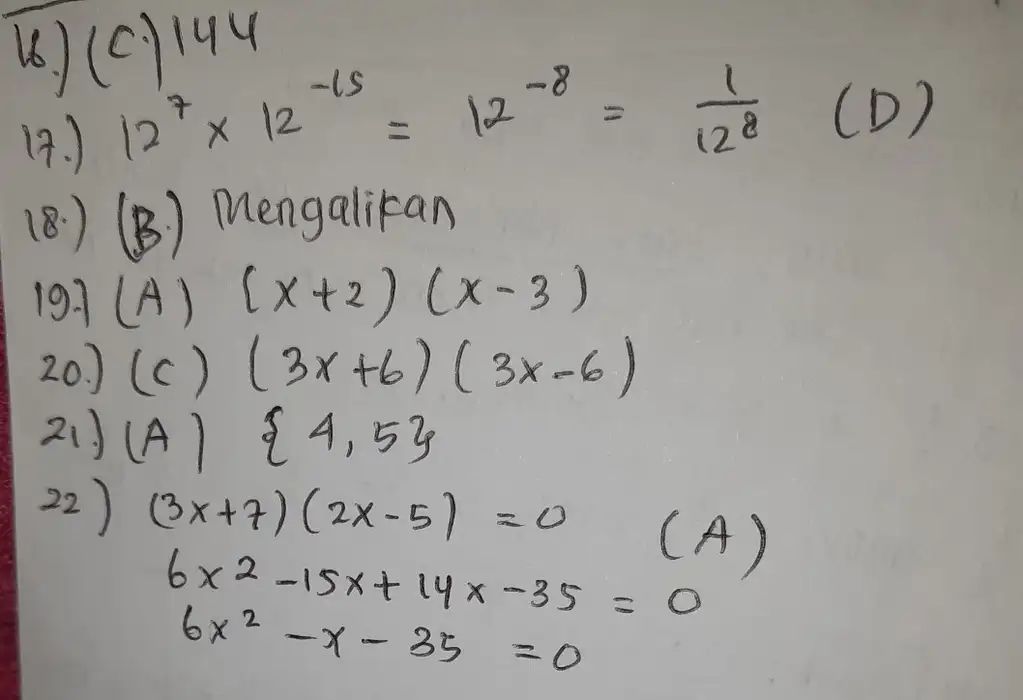 16.) (C.) 144
17.) 12⁷ x 12⁻¹⁵ = 12⁻⁸ = 1/12⁸ (D)
18.) (B.) Mengalikan
19.) (A) (x+2) (x-3)
20.) (C) (3x+6) (3x-6)
21.) (A) {4,5}
22) (3x+7) (2x-5) = 0 (A)
6x² -15x + 14x -35 = 0
6x² -x - 35 = 0